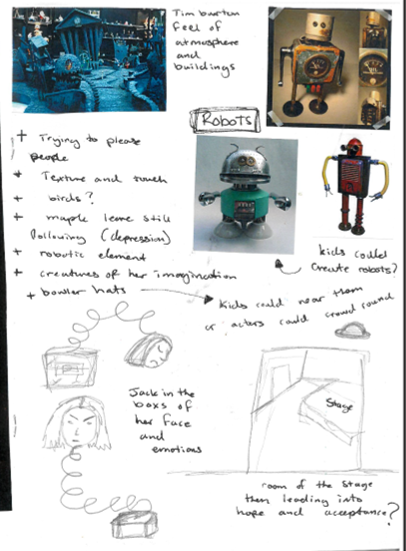 Tim burton
feel of
atmosphere
and
buildings
Robots
+ Trying to please
people
+ Texture and touch
+ birds?
+ maple leave still
following (depression)
+ robotic element
+ creatures of her imagination
+ bowler hats
kids could
create robots?
kids could wear them
or actors could crowd round
Jack in the
boxs of
her face
and
emotions
Stage
room of the stage
then leading into
hope and acceptance?